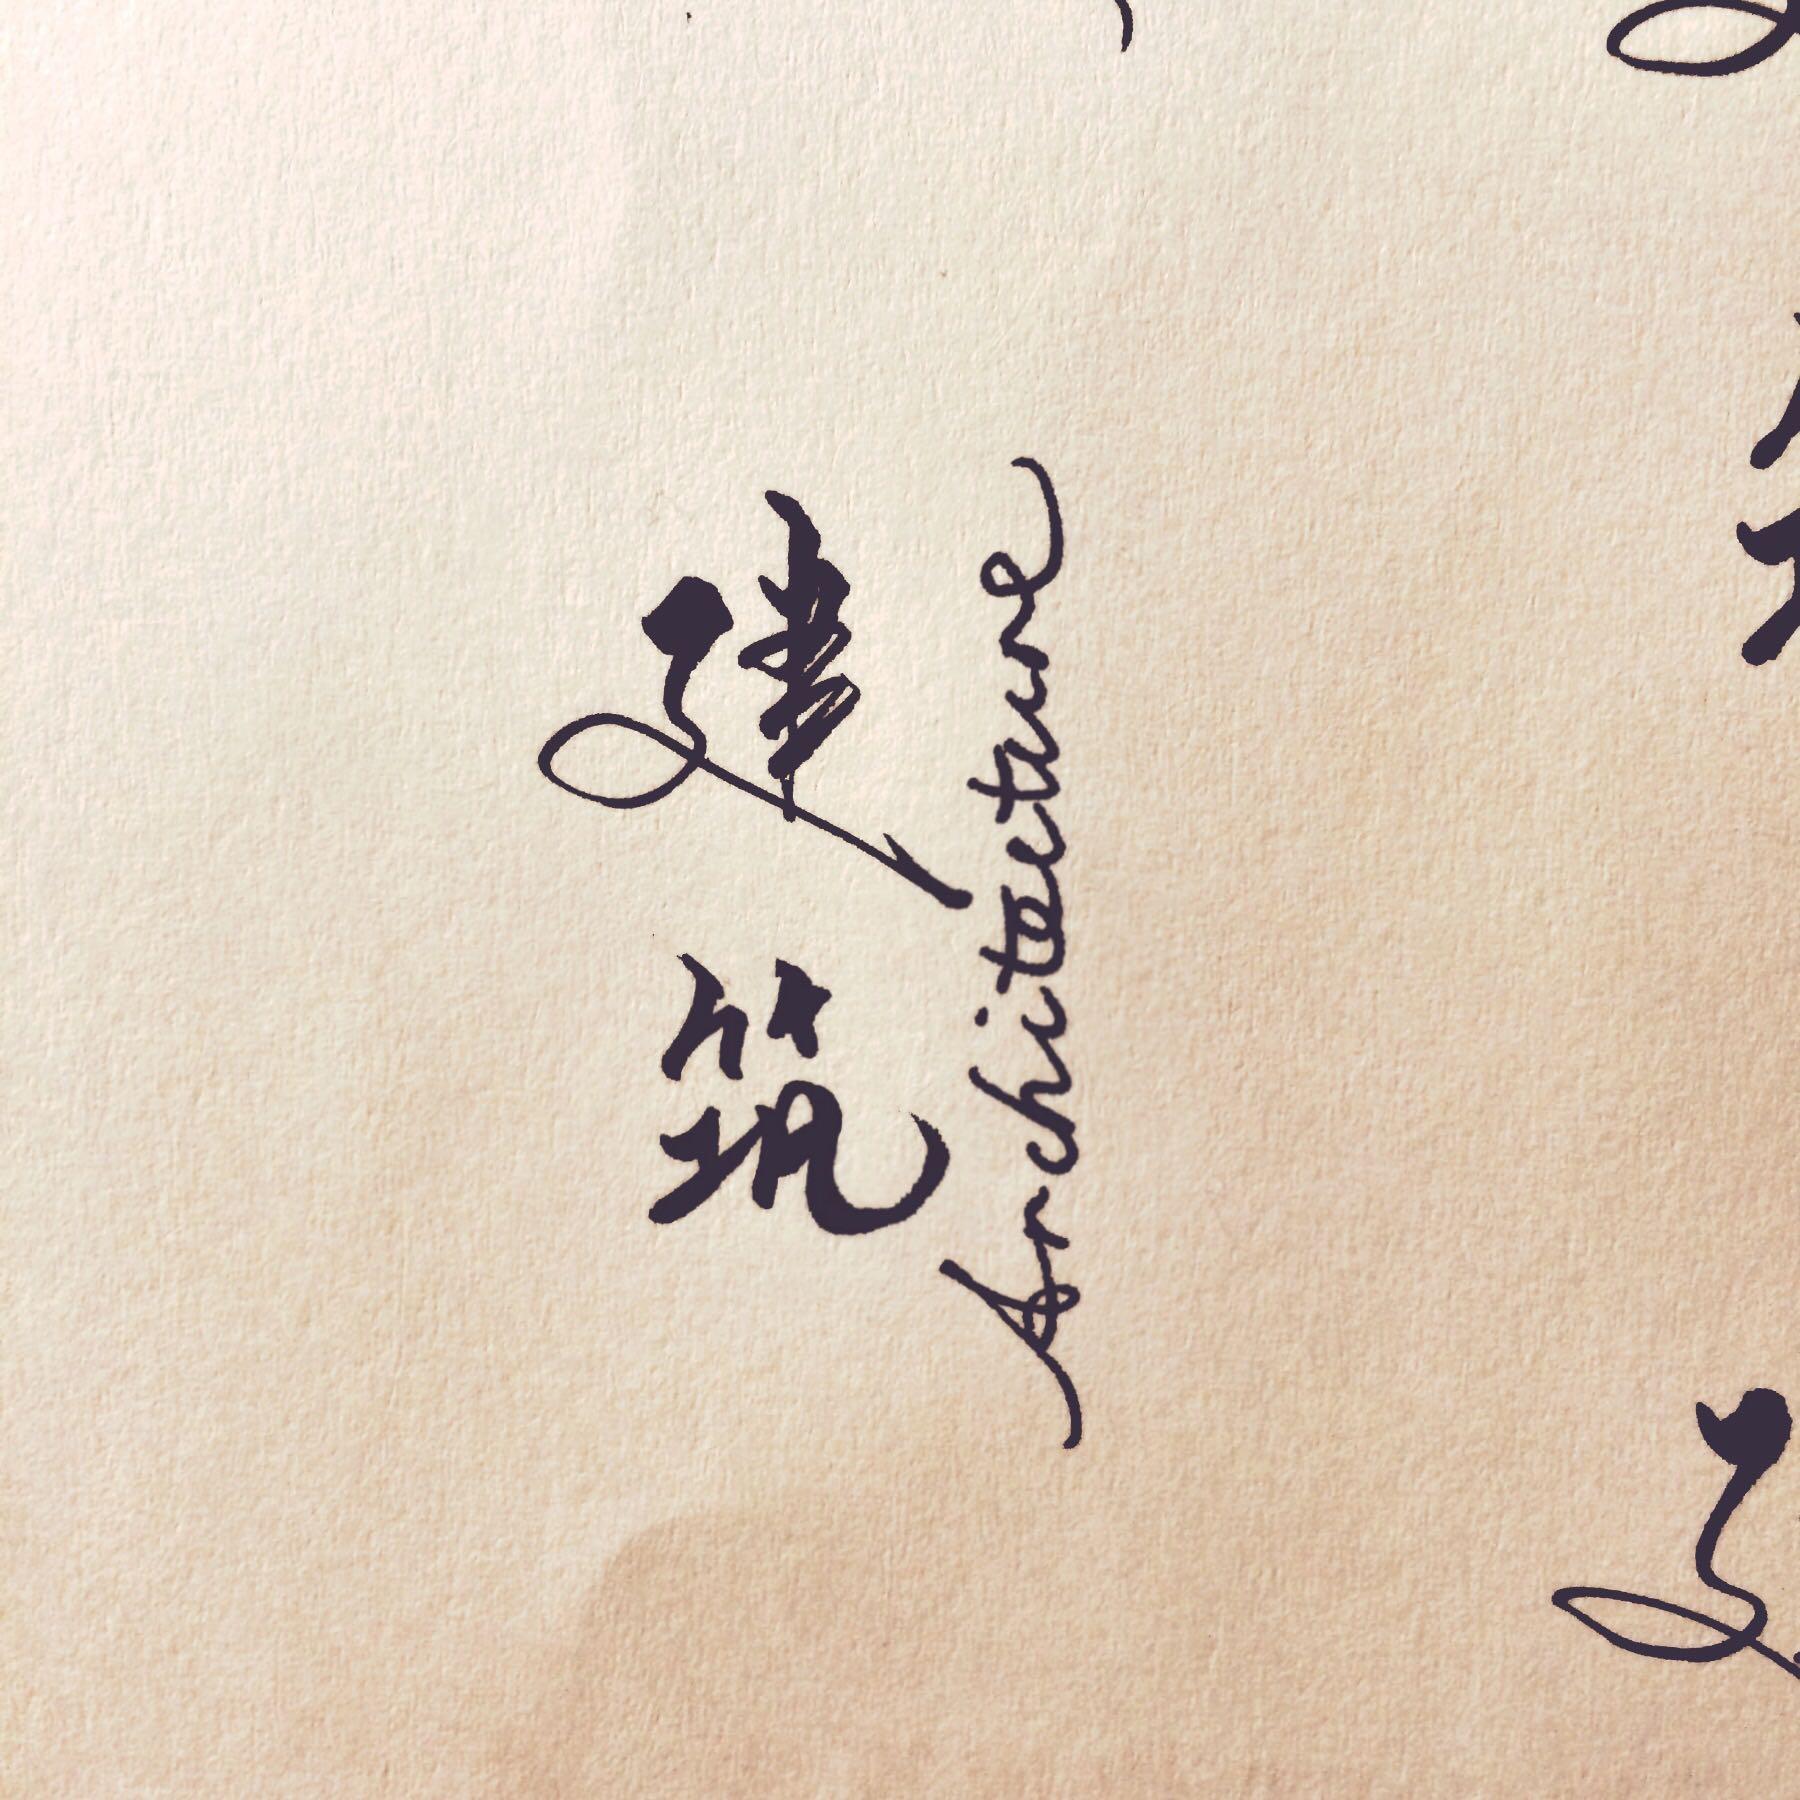 建筑
Architecture